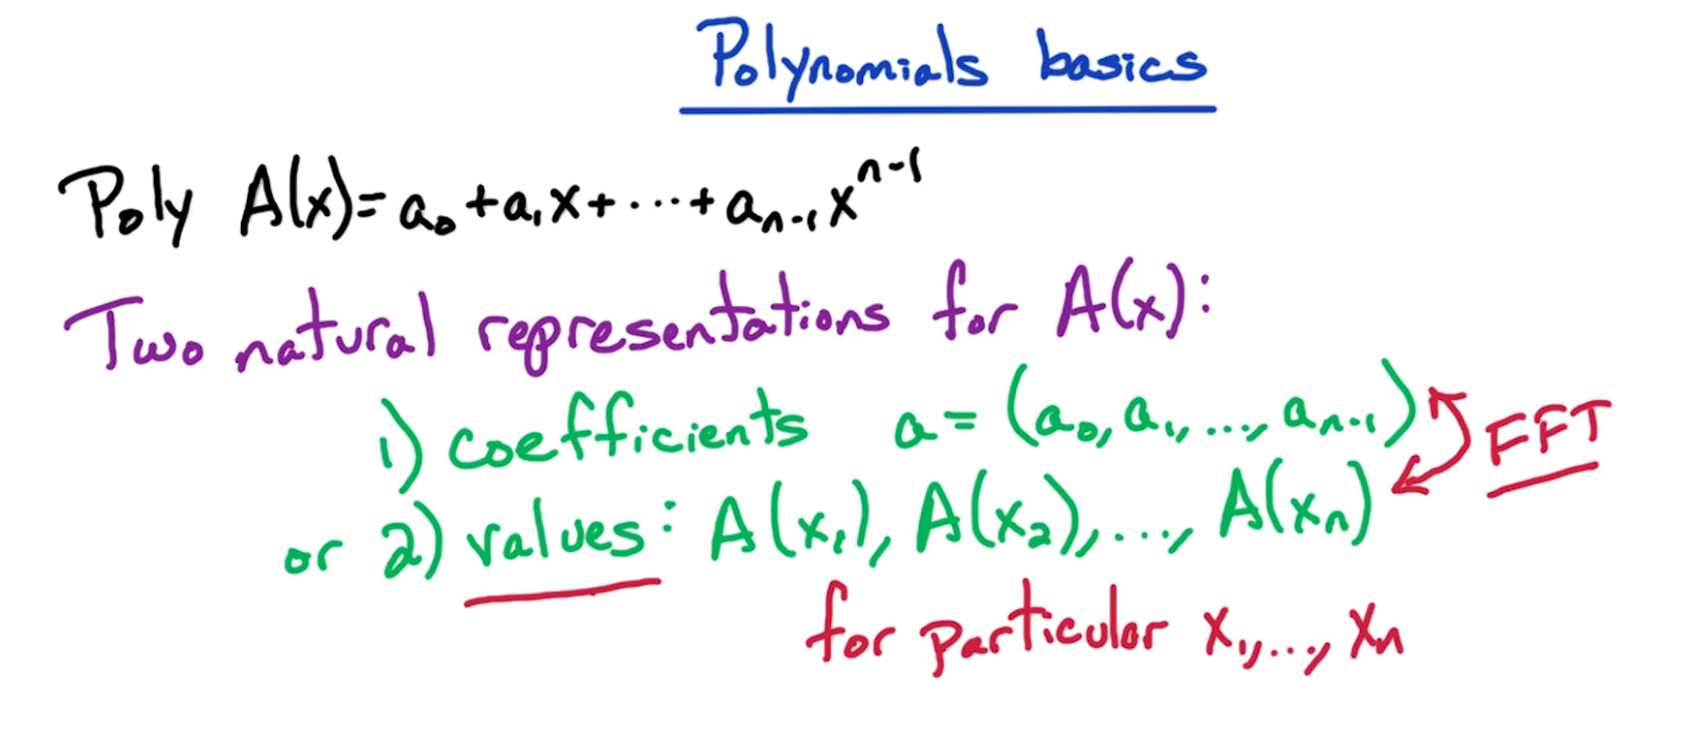 Polynomials basics
Poly A(x)= a₀ + a₁x + ··· + aₙ₋₁ xⁿ⁻¹
Two natural representations for A(x):
1) coefficients a = (a₀, a₁, ..., aₙ₋₁) FFT
or 2) values: A(x₁), A(x₂), ..., A(xₙ)
for particular x₁, ..., xₙ